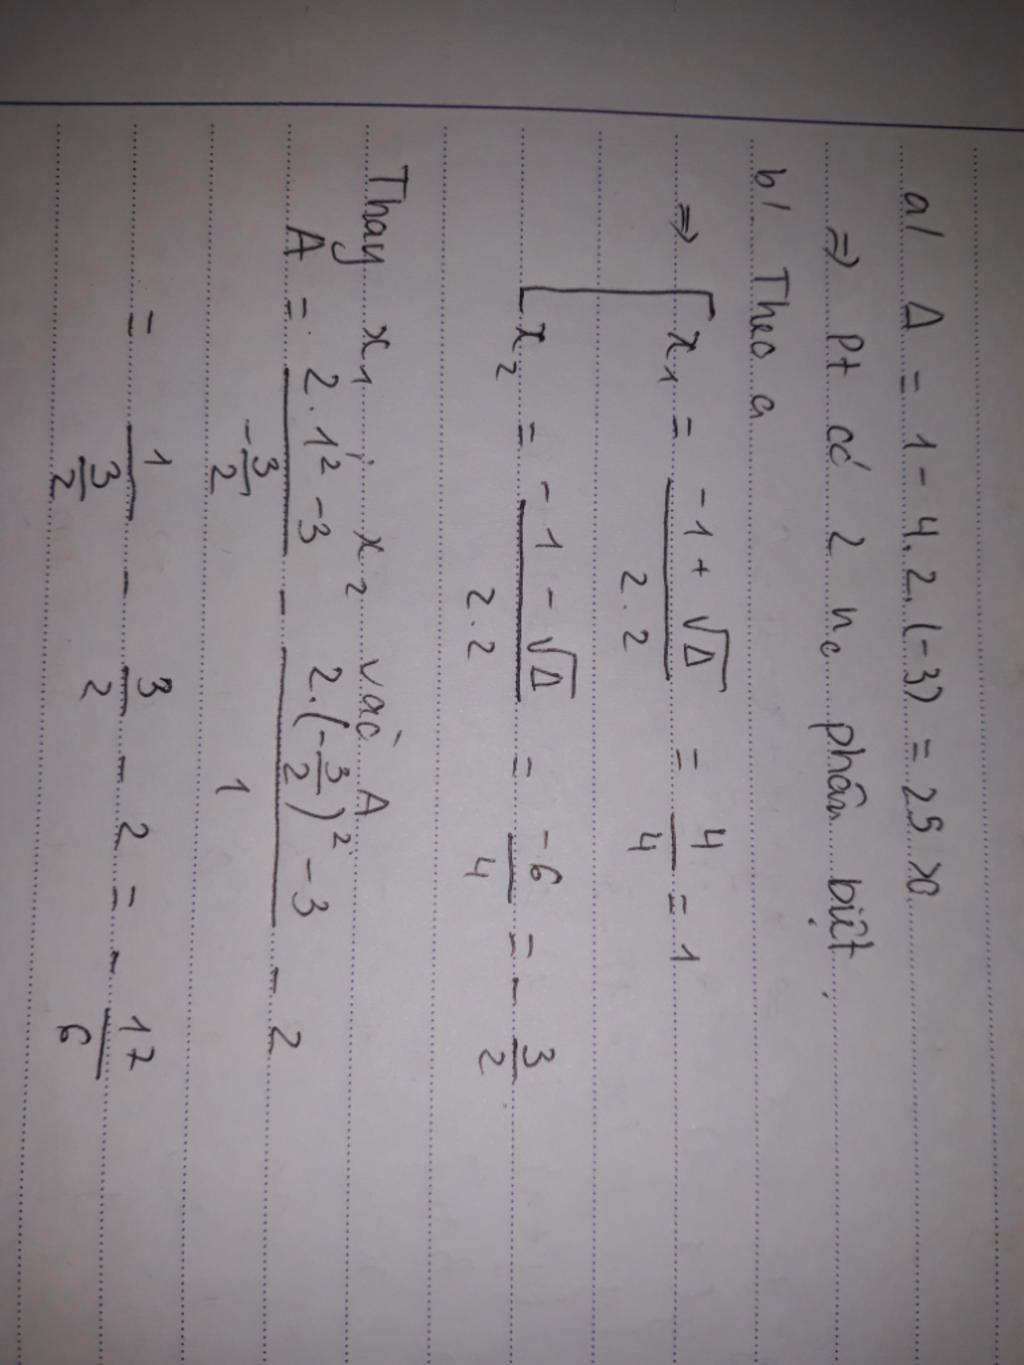 a/ Δ = 1 - 4.2.(-3) = 25 >0
⇒ Pt có 2 nc phân biệt.
b/ Theo a
⇒ [ x₁ = (-1 + √Δ)/(2.2) = 4/4 = 1
x₂ = (-1 - √Δ)/(2.2) = -6/4 = -3/2
Thay x₁; x₂ vào A
A = (2.1² - 3)/(-3/2) - (2.(-3/2)² - 3)/1 - 2
= 1/(3/2) - 3/2 - 2 = -17/6